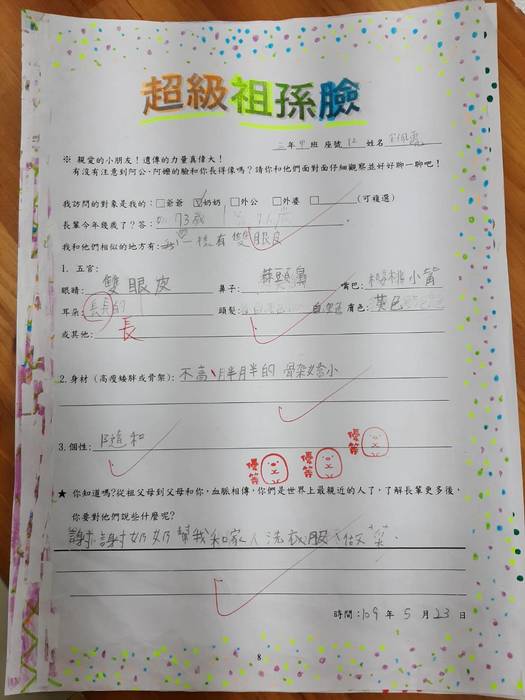 超級祖孫臉
三年甲班 座號12 姓名
※ 親愛的小朋友！遺傳的力量真偉大！
有沒有注意到阿公、阿嬤的臉和你長得像嗎？請你和他們面對面仔細觀察並好好聊一聊吧！
我訪問的對象是我的：□爺爺 ☑奶奶 □外公 □外婆 □ (可複選)
長輩今年幾歲了？答： 73歲
我和他們相似的地方有： 一樣有雙眼皮
1. 五官：
眼睛：雙眼皮 鼻子：蒜頭鼻 嘴巴：櫻桃小嘴
耳朵：長長的 頭髮： 膚色：黃色
長
或其他：
2. 身材 (高度矮胖或骨架)：不高、胖胖的 骨架嬌小
3. 個性：隨和
優等 優等 優等
★ 你知道嗎?從祖父母到父母和你，血脈相傳，你們是世界上最親近的人了，了解長輩更多後，
你要對他們說些什麼呢?
謝謝奶奶幫我和家人洗衣服、做菜。
時間：109 年 5 月 23 日
8